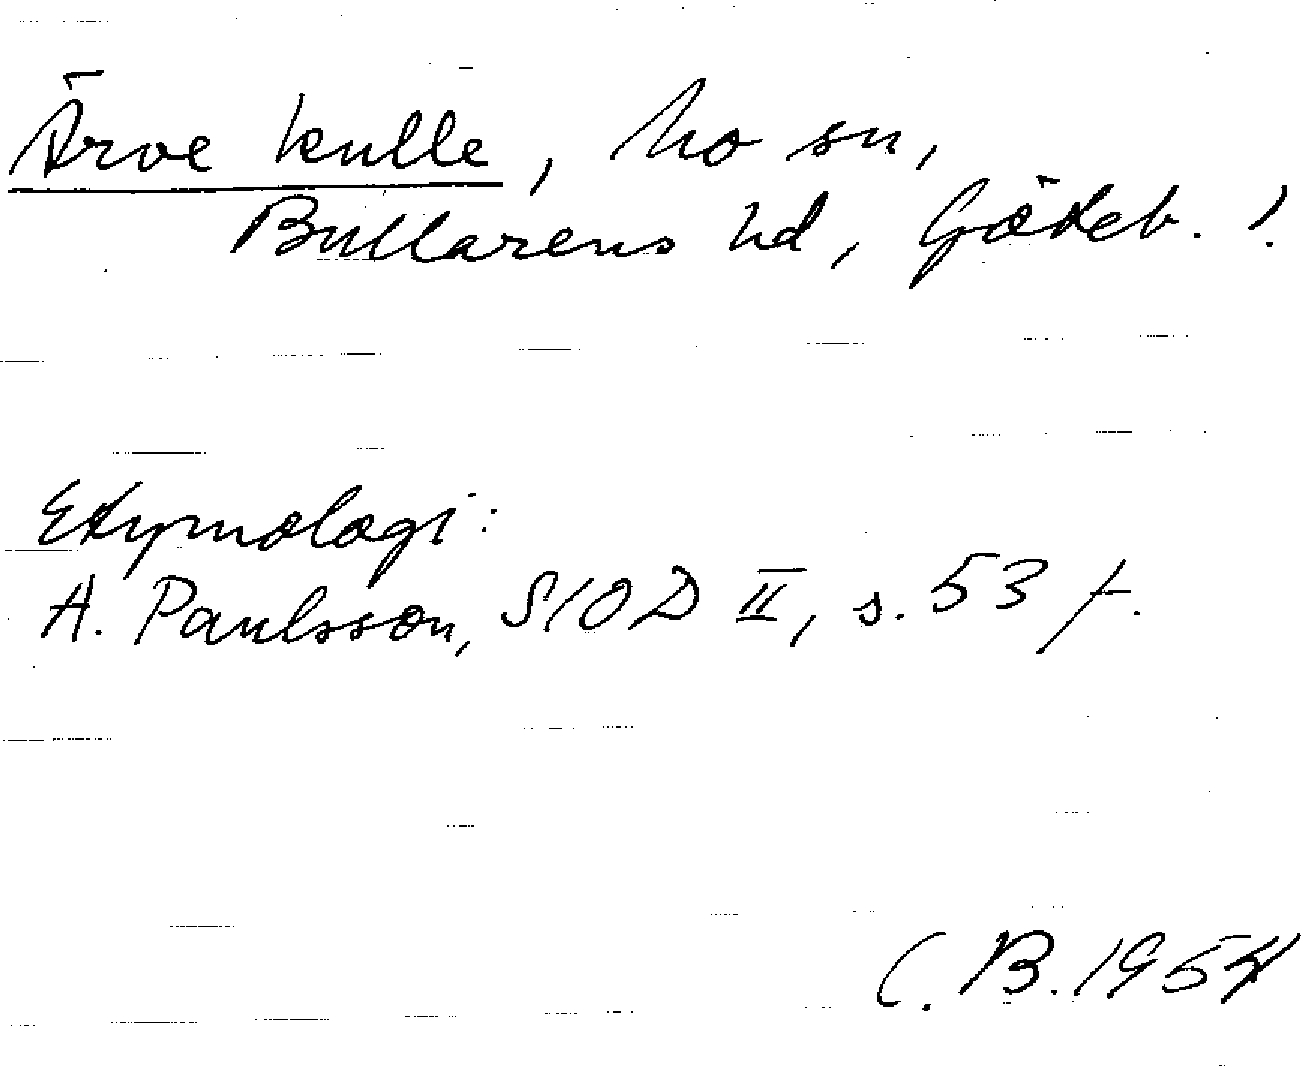 Ärve kulle, Mo sn,
Bullarens hd, Göteb. !
Etymologi:
A. Paulsson, SIOD II, s. 53 f.
C. B. 1954